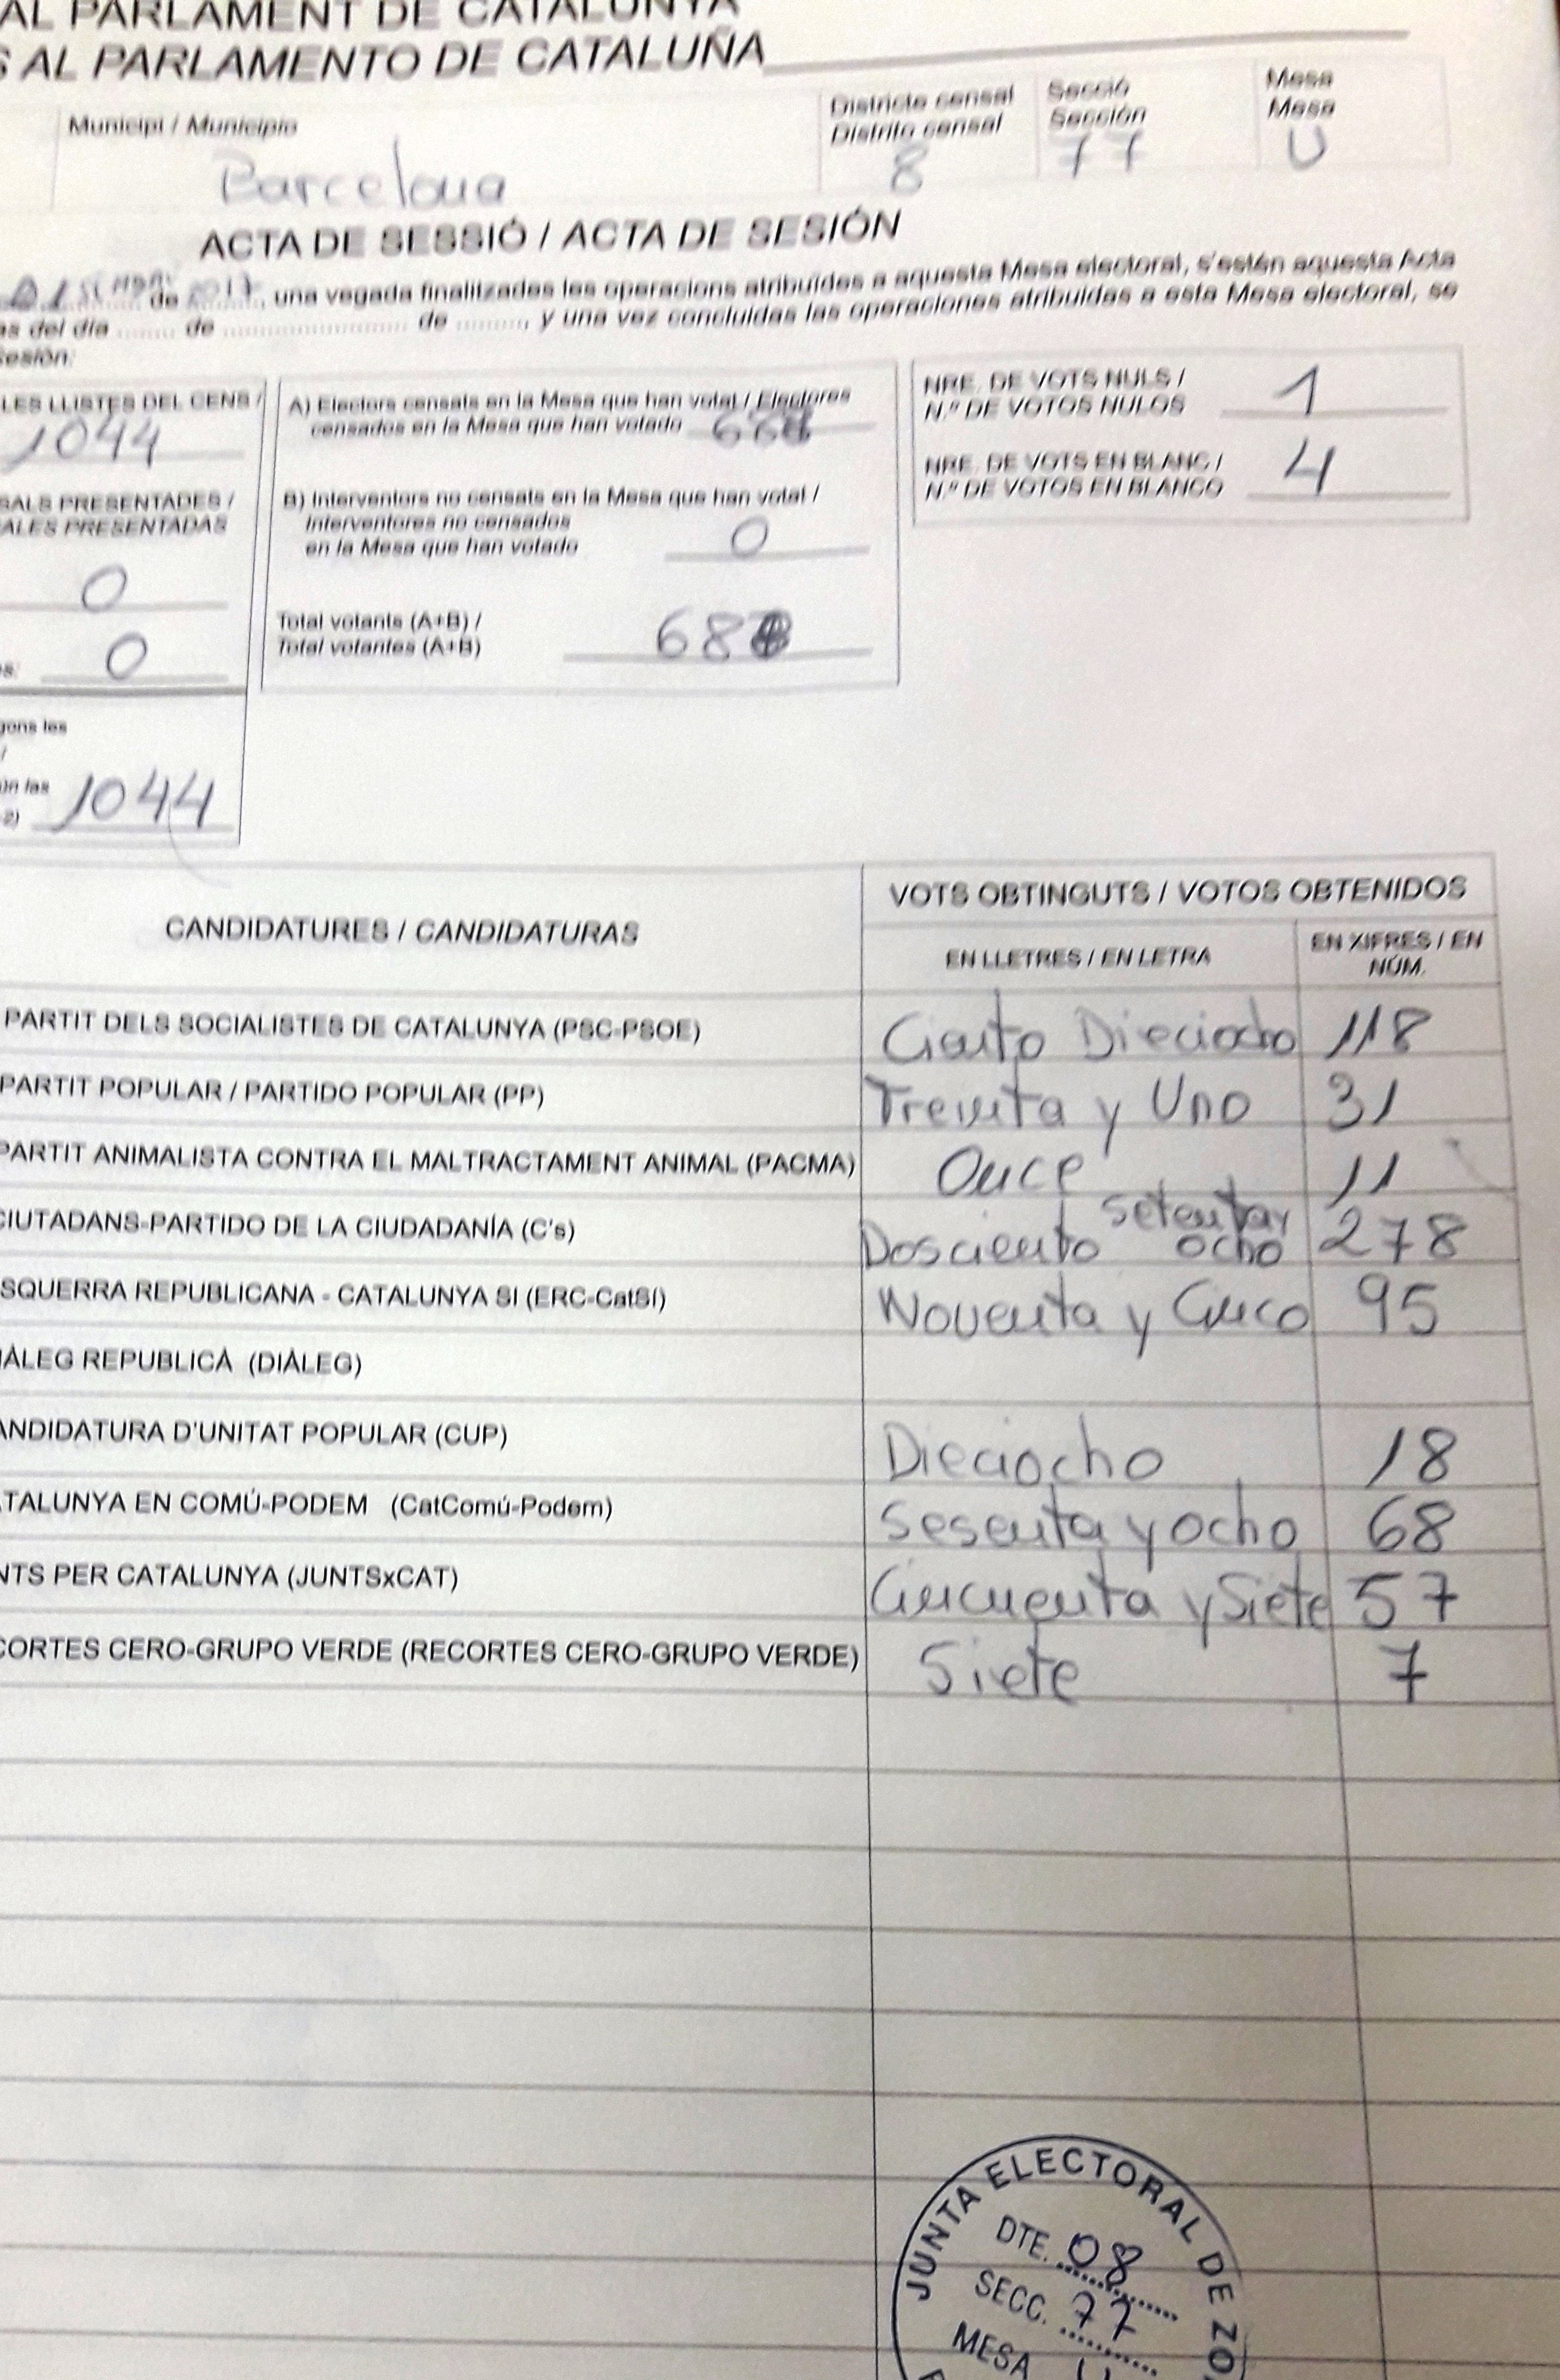 AL PARLAMENT DE CATALUNYA
S AL PARLAMENTO DE CATALUÑA
Municipi / Municipio
Barcelona
Districte censal
Distrito censal
8
Secció
Sección
77
Mesa
Mesa
U
ACTA DE SESSIÓ / ACTA DE SESIÓN
de 2017, una vegada finalitzades les operacions atribuïdes a aquesta Mesa electoral, s'estén aquesta Acta
as del día ........ de ........................ de ........, y una vez concluidas las operaciones atribuidas a esta Mesa electoral, se
Sesión:
LES LLISTES DEL CENS /
1044
SALS PRESENTADES /
ALES PRESENTADAS
0
s: 0
gons les
/
ún las
2) 1044
A) Electors censats en la Mesa que han votat / Electores
censados en la Mesa que han votado
B) Interventors no censats en la Mesa que han votat /
Interventores no censados
en la Mesa que han votado 0
Total votants (A+B) /
Total votantes (A+B)
NRE. DE VOTS NULS /
N.º DE VOTOS NULOS 1
NRE. DE VOTS EN BLANC /
N.º DE VOTOS EN BLANCO 4
CANDIDATURES / CANDIDATURAS
VOTS OBTINGUTS / VOTOS OBTENIDOS
EN LLETRES / EN LETRA
EN XIFRES / EN
NÚM.
PARTIT DELS SOCIALISTES DE CATALUNYA (PSC-PSOE) Ciento Dieciocho 118
PARTIT POPULAR / PARTIDO POPULAR (PP) Treinta y Uno 31
PARTIT ANIMALISTA CONTRA EL MALTRACTAMENT ANIMAL (PACMA) Once 11
CIUTADANS-PARTIDO DE LA CIUDADANÍA (C's) Dosciento setenta y ocho 278
SQUERRA REPUBLICANA - CATALUNYA SI (ERC-CatSí) Noventa y Cinco 95
IÀLEG REPUBLICÀ (DIÀLEG)
ANDIDATURA D'UNITAT POPULAR (CUP) Dieciocho 18
TALUNYA EN COMÚ-PODEM (CatComú-Podem) Sesenta y ocho 68
NTS PER CATALUNYA (JUNTSxCAT) Cincuenta y Siete 57
CORTES CERO-GRUPO VERDE (RECORTES CERO-GRUPO VERDE) Siete 7
JUNTA ELECTORAL DE ZO
DTE. 08
SECC. 77
MESA U